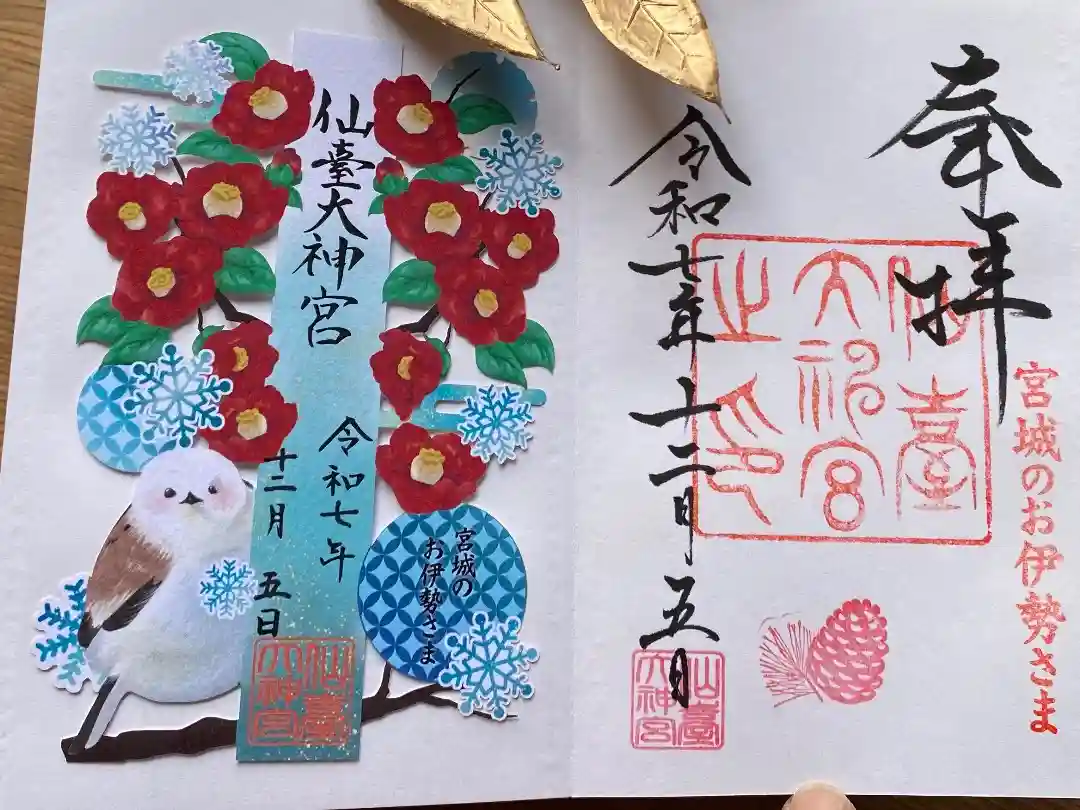 奉拝
宮城のお伊勢さま
仙臺
大神宮
之印
令和七年十二月五日
仙臺
大神宮
仙臺大神宮
令和七年
十二月
五日
仙臺
大神宮
宮城の
お伊勢さま